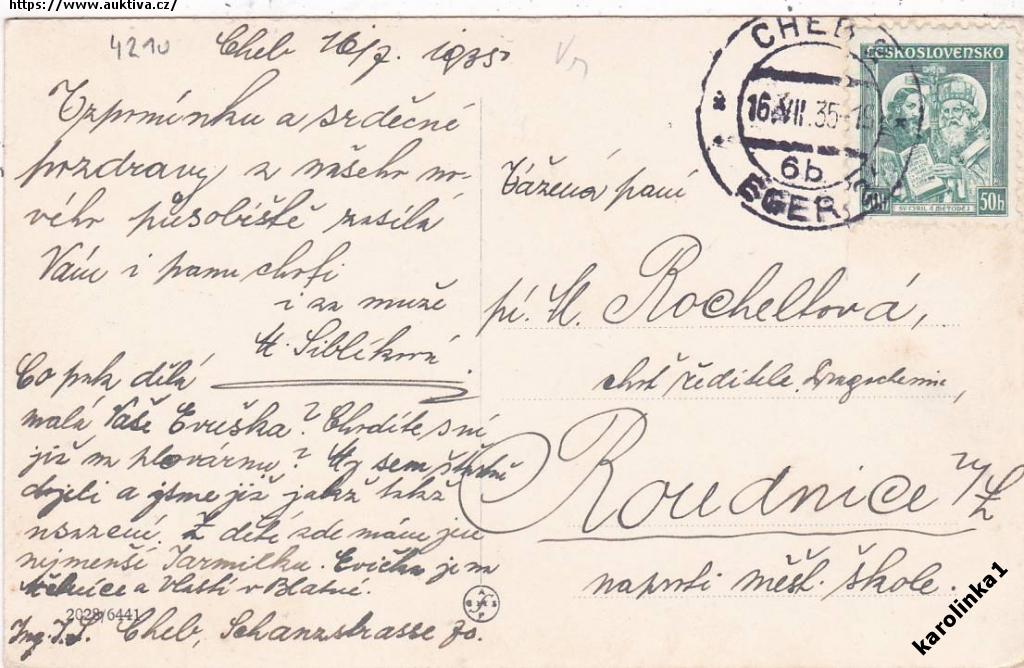 https://www.auktiva.cz/
4210 Cheb 16/7. 1935
Vzpomínku a srdečné
pozdravy z našeho no-
vého působiště zasílá
Vám i panu choti
i za muže
M. Siblíková.
Co pak dělá
malá Vaše Evuška? Chodíte s ní
již na plovárnu? My sem šťastně
dojeli a jsme již jakž takž
usazeni. Z dětí zde mám jen
nejmenší Jarmilku. Evička je na
a Vlasti v Blatné.
2028/6441
Ing. J. S. Cheb, Schanzstrasse 70.
CHEB
16.VII.35
6b
EGER
ČESKOSLOVENSKO
50h
SV. CYRIL A METODĚJ
50h
Vážená paní
pí. M. Rocheltová,
choť ředitele
Roudnice n/L
naproti měst. škole.
karolinka1